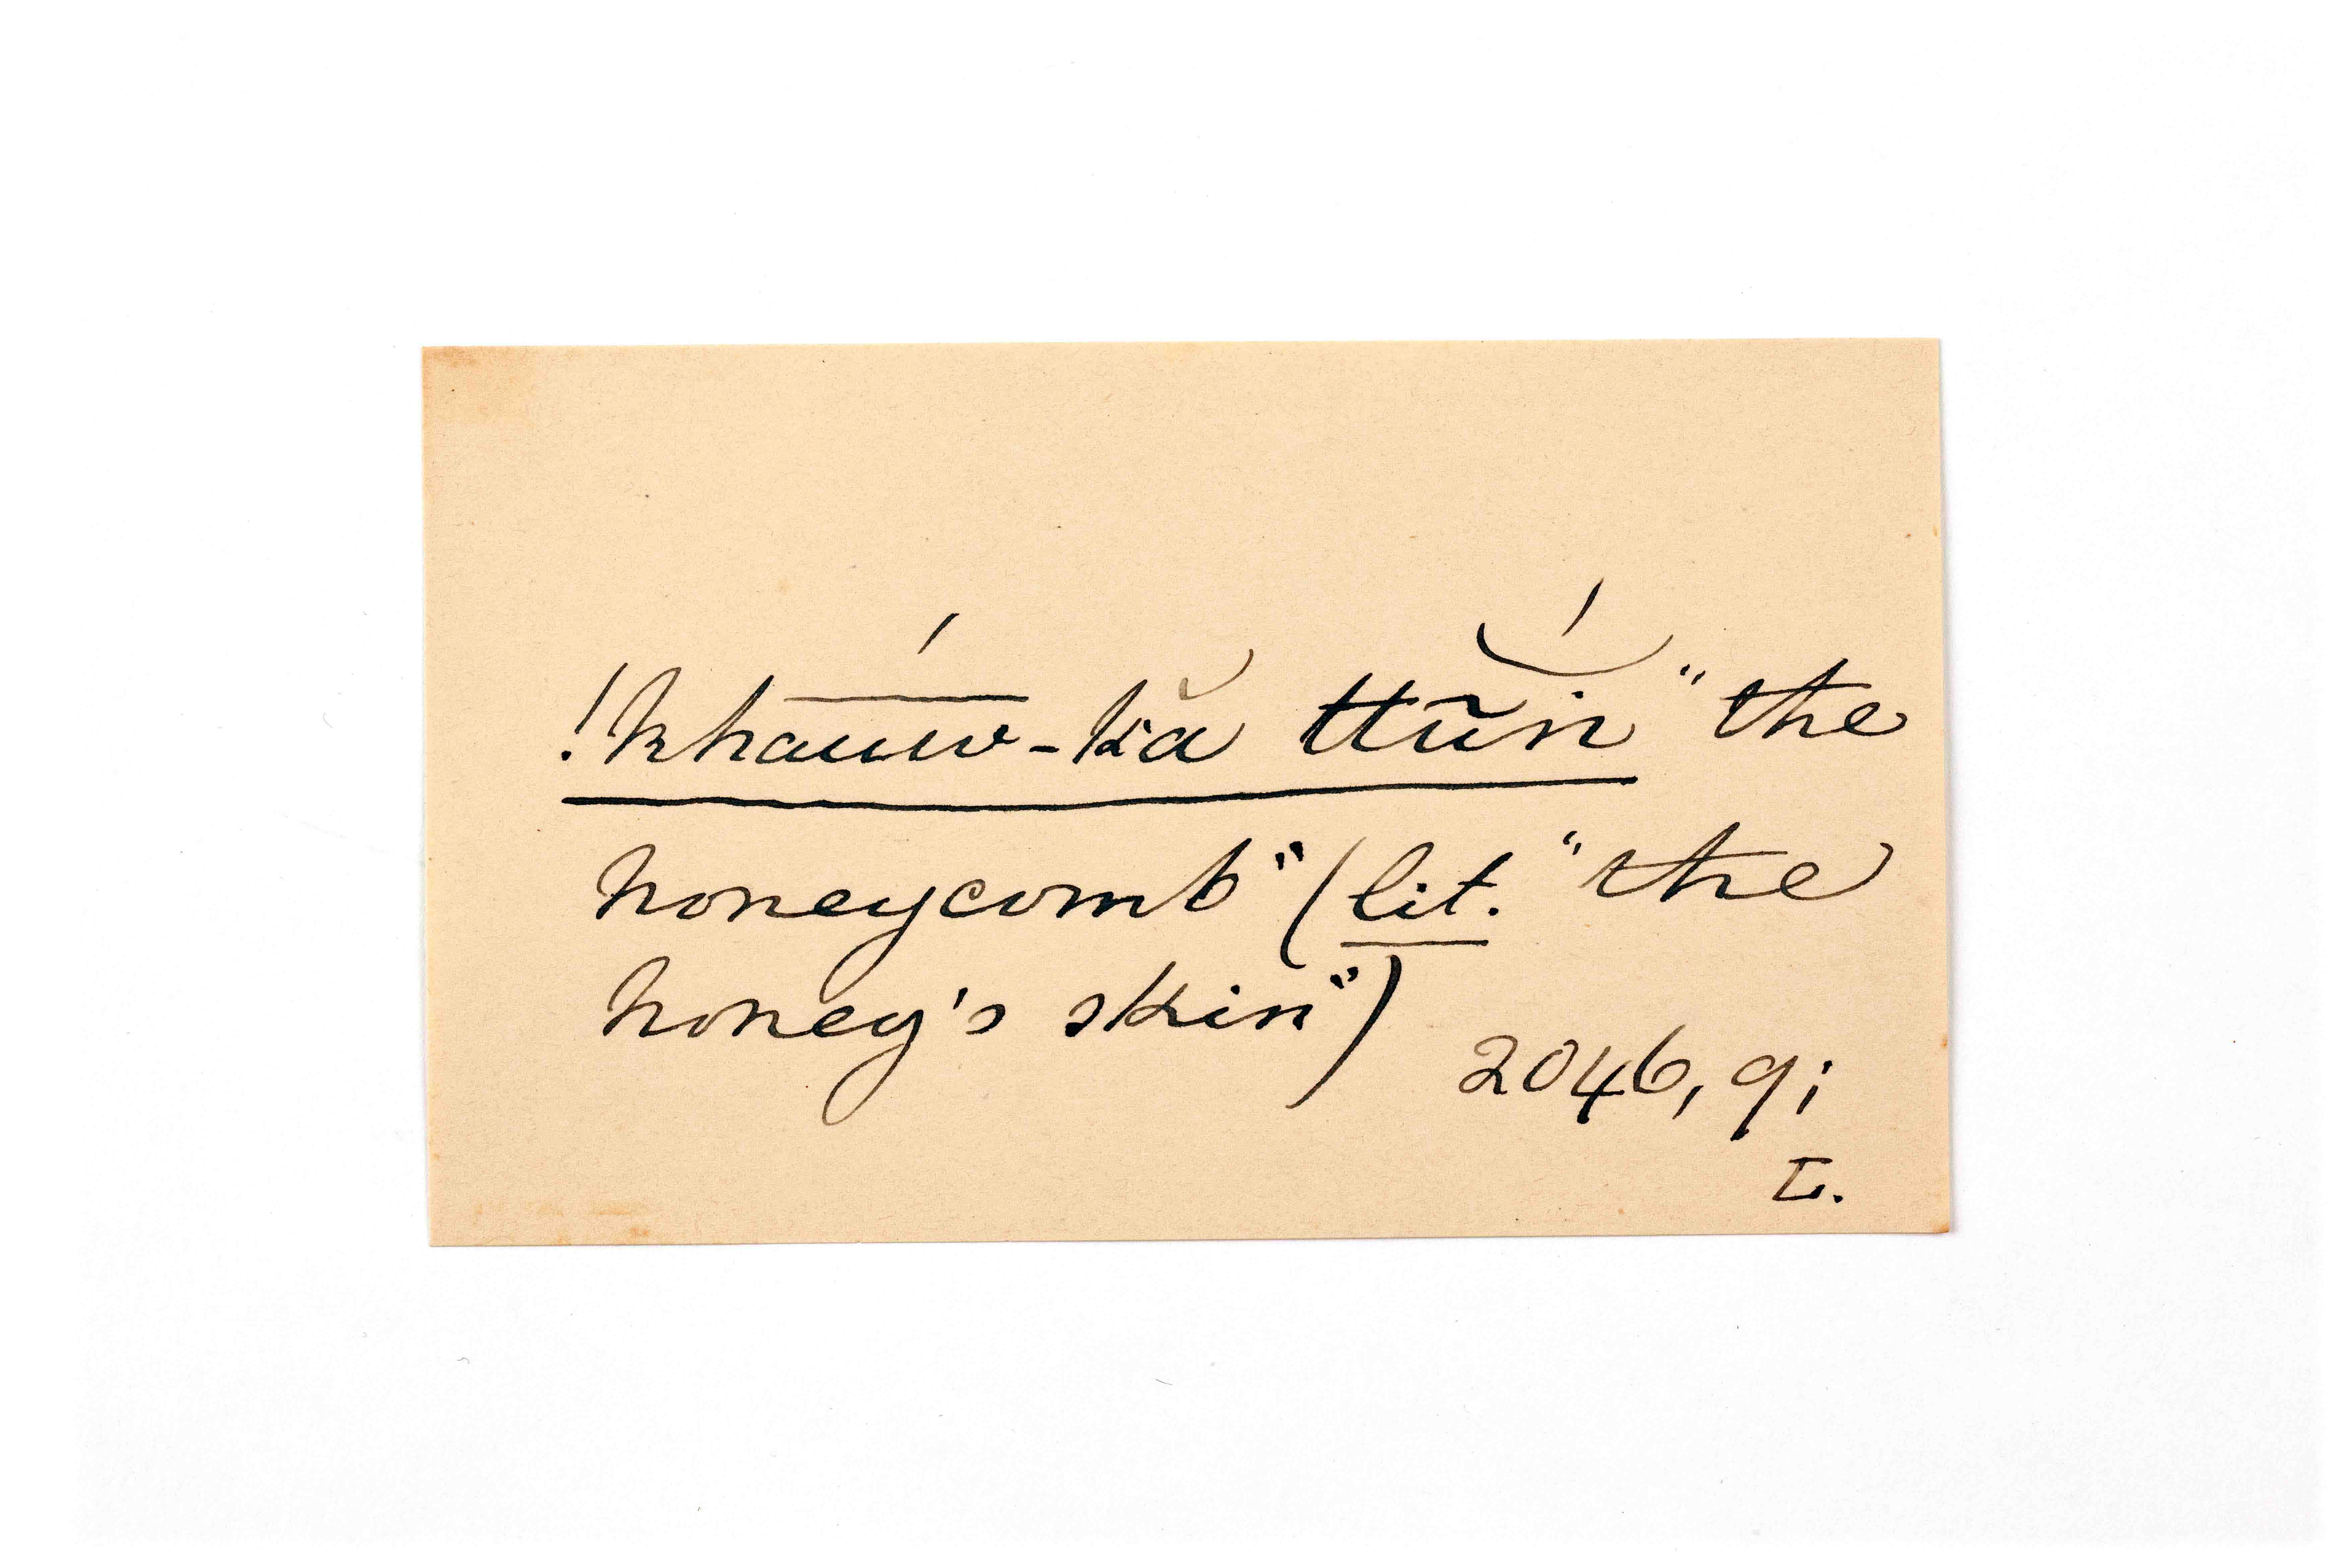 !khā́ūw-kă ttŭ̃ṅ "the
honeycomb" (lit. "the
honey's skin")
2046, 9;
L.